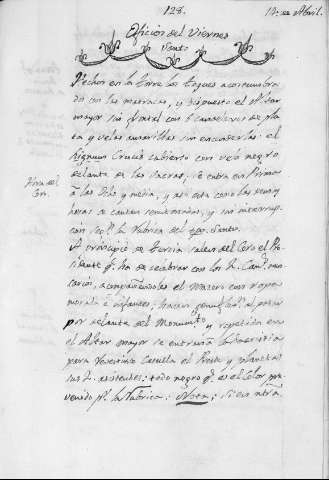 128.
13. de Abril.
Oficios del Viernes
Santo
Hechos en la torre los toques acostumbra
dos con las matracas, y dispuesto el Altar
mayor sin frontal con 6 candeleros de pla
ta y velas amarillas sin encenderlas: el
Lignum Crucis cubierto con velo negro
delante de las Sacras, se entra en Prima
à las seis y media, y asi esta como las demas
horas se cantan semitonadas, y sin interrup-
cion segn la Rubrica del tpo. Santo.
Al principio de Tercia salen del Coro el Pre
sidente q. ha de celebrar con los 2.
Hora del
Coro.
carios, acompañandolos el Maestro con ropa
morada è infantes; hacen genuflexn al pasar
por delante del Monumto y repetida en
el Altar mayor se entran a la Sacristia
para revestirse Casulla el Preste y planetas
sus 2. asistentes: todo negro q. es el color pre
venido pr la Rubrica: Nota; si en ntra.